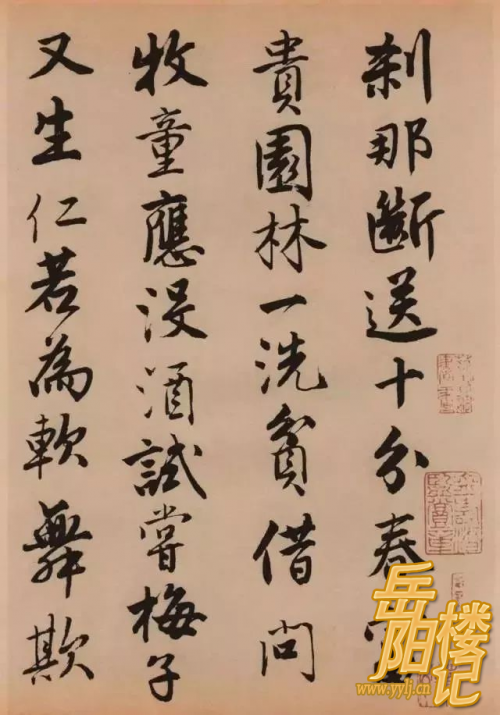 刹那斷送十分春
貴園林一洗貧借問
牧童應没酒試嘗梅子
又生仁若為軟舞欺
岳阳楼记
www.yylj.cn